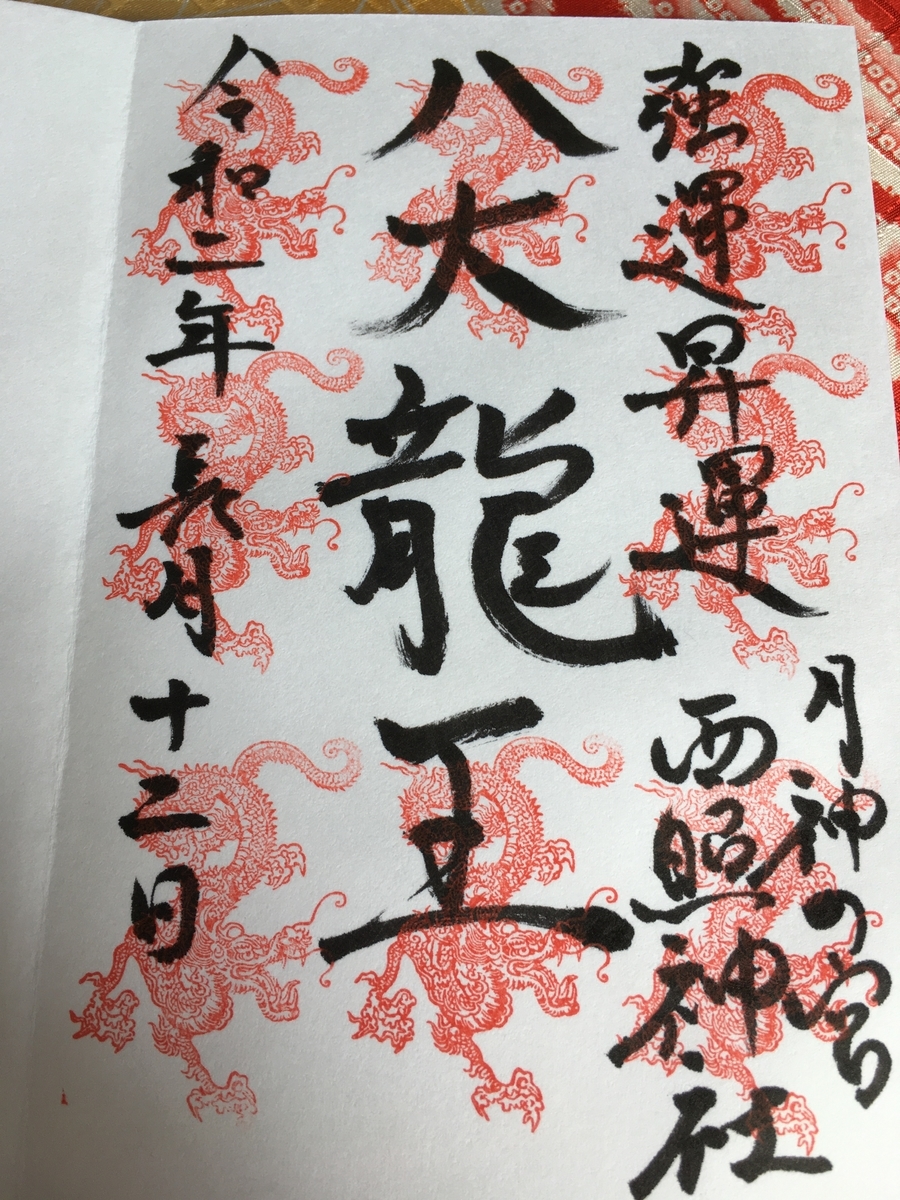 強運昇運
月神の宮
西照神社
八大龍王
令和二年長月十二日